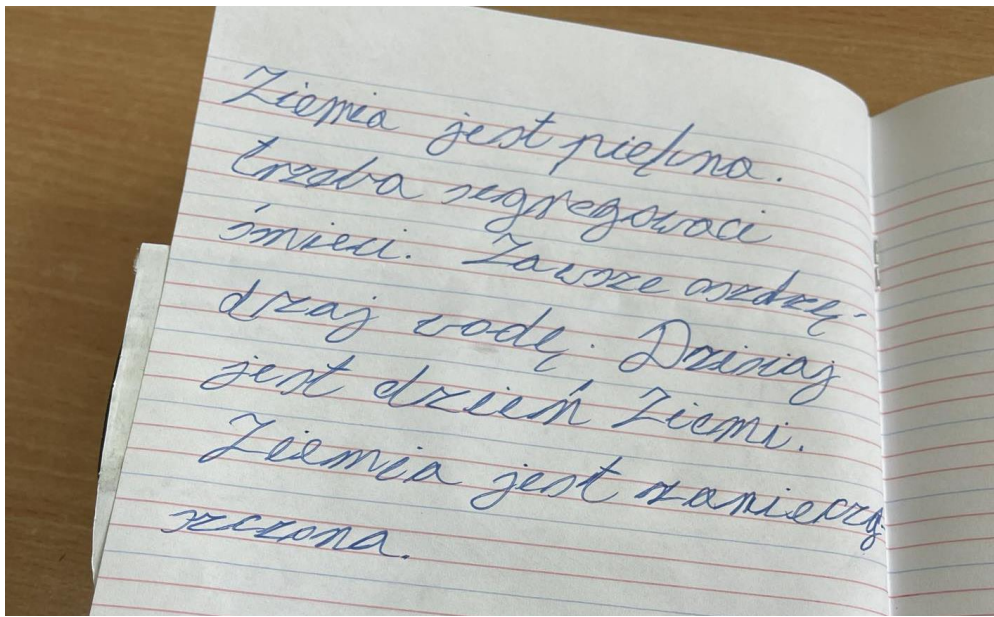 Ziemia jest piękna.
trzeba segregowaci
śmieci. Zawsze oszdzę-
dzaj wodę. Dzisiaj
jest dzień Ziemi.
Ziemia jest zanieczy-
szczona.